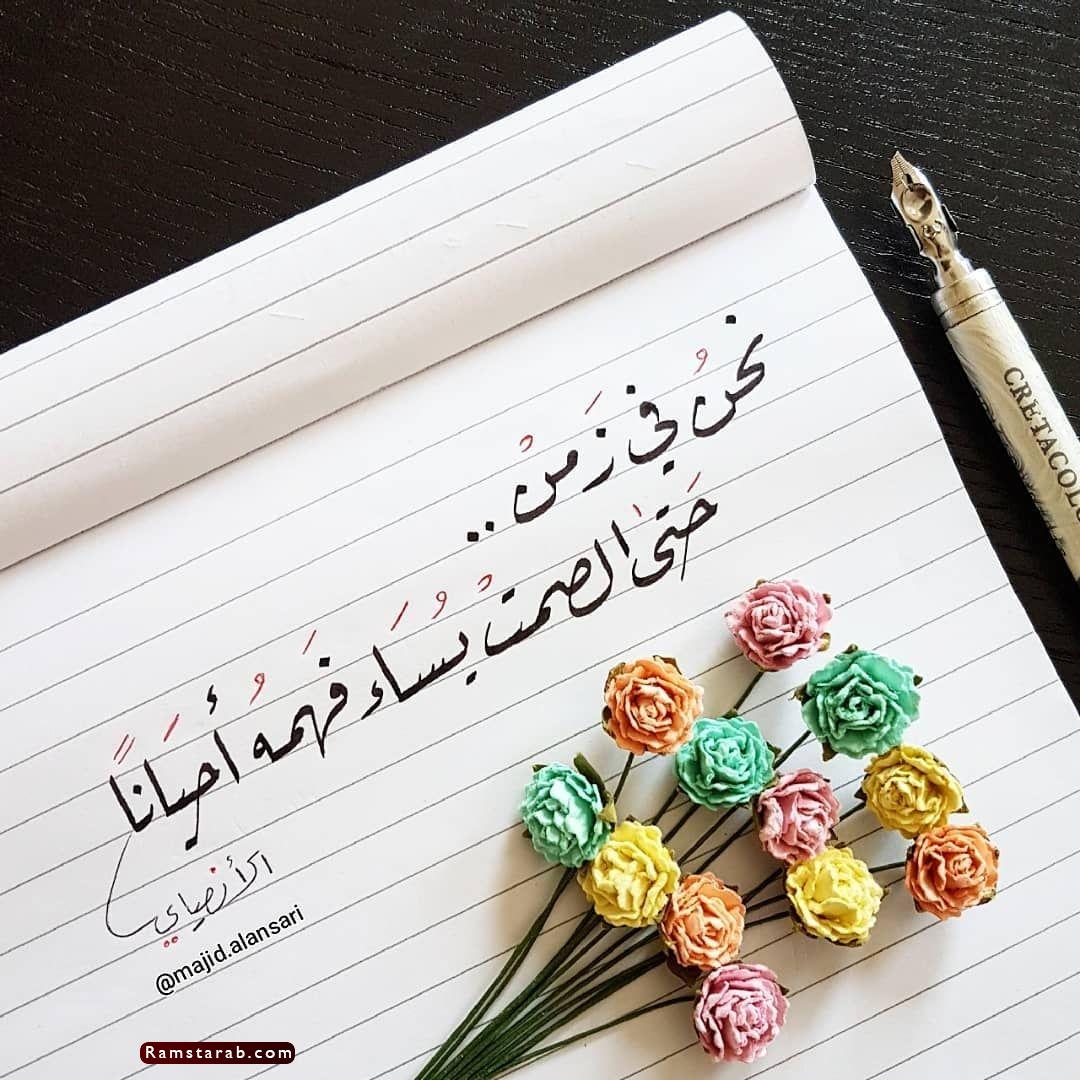 نحنُ في زَمنْ ..
حَتى الصمتْ يُساَء فَهمهُ أحيَاناً
الأنصاري
@majid.alansari
CRETACOLO
Ramstarab.com